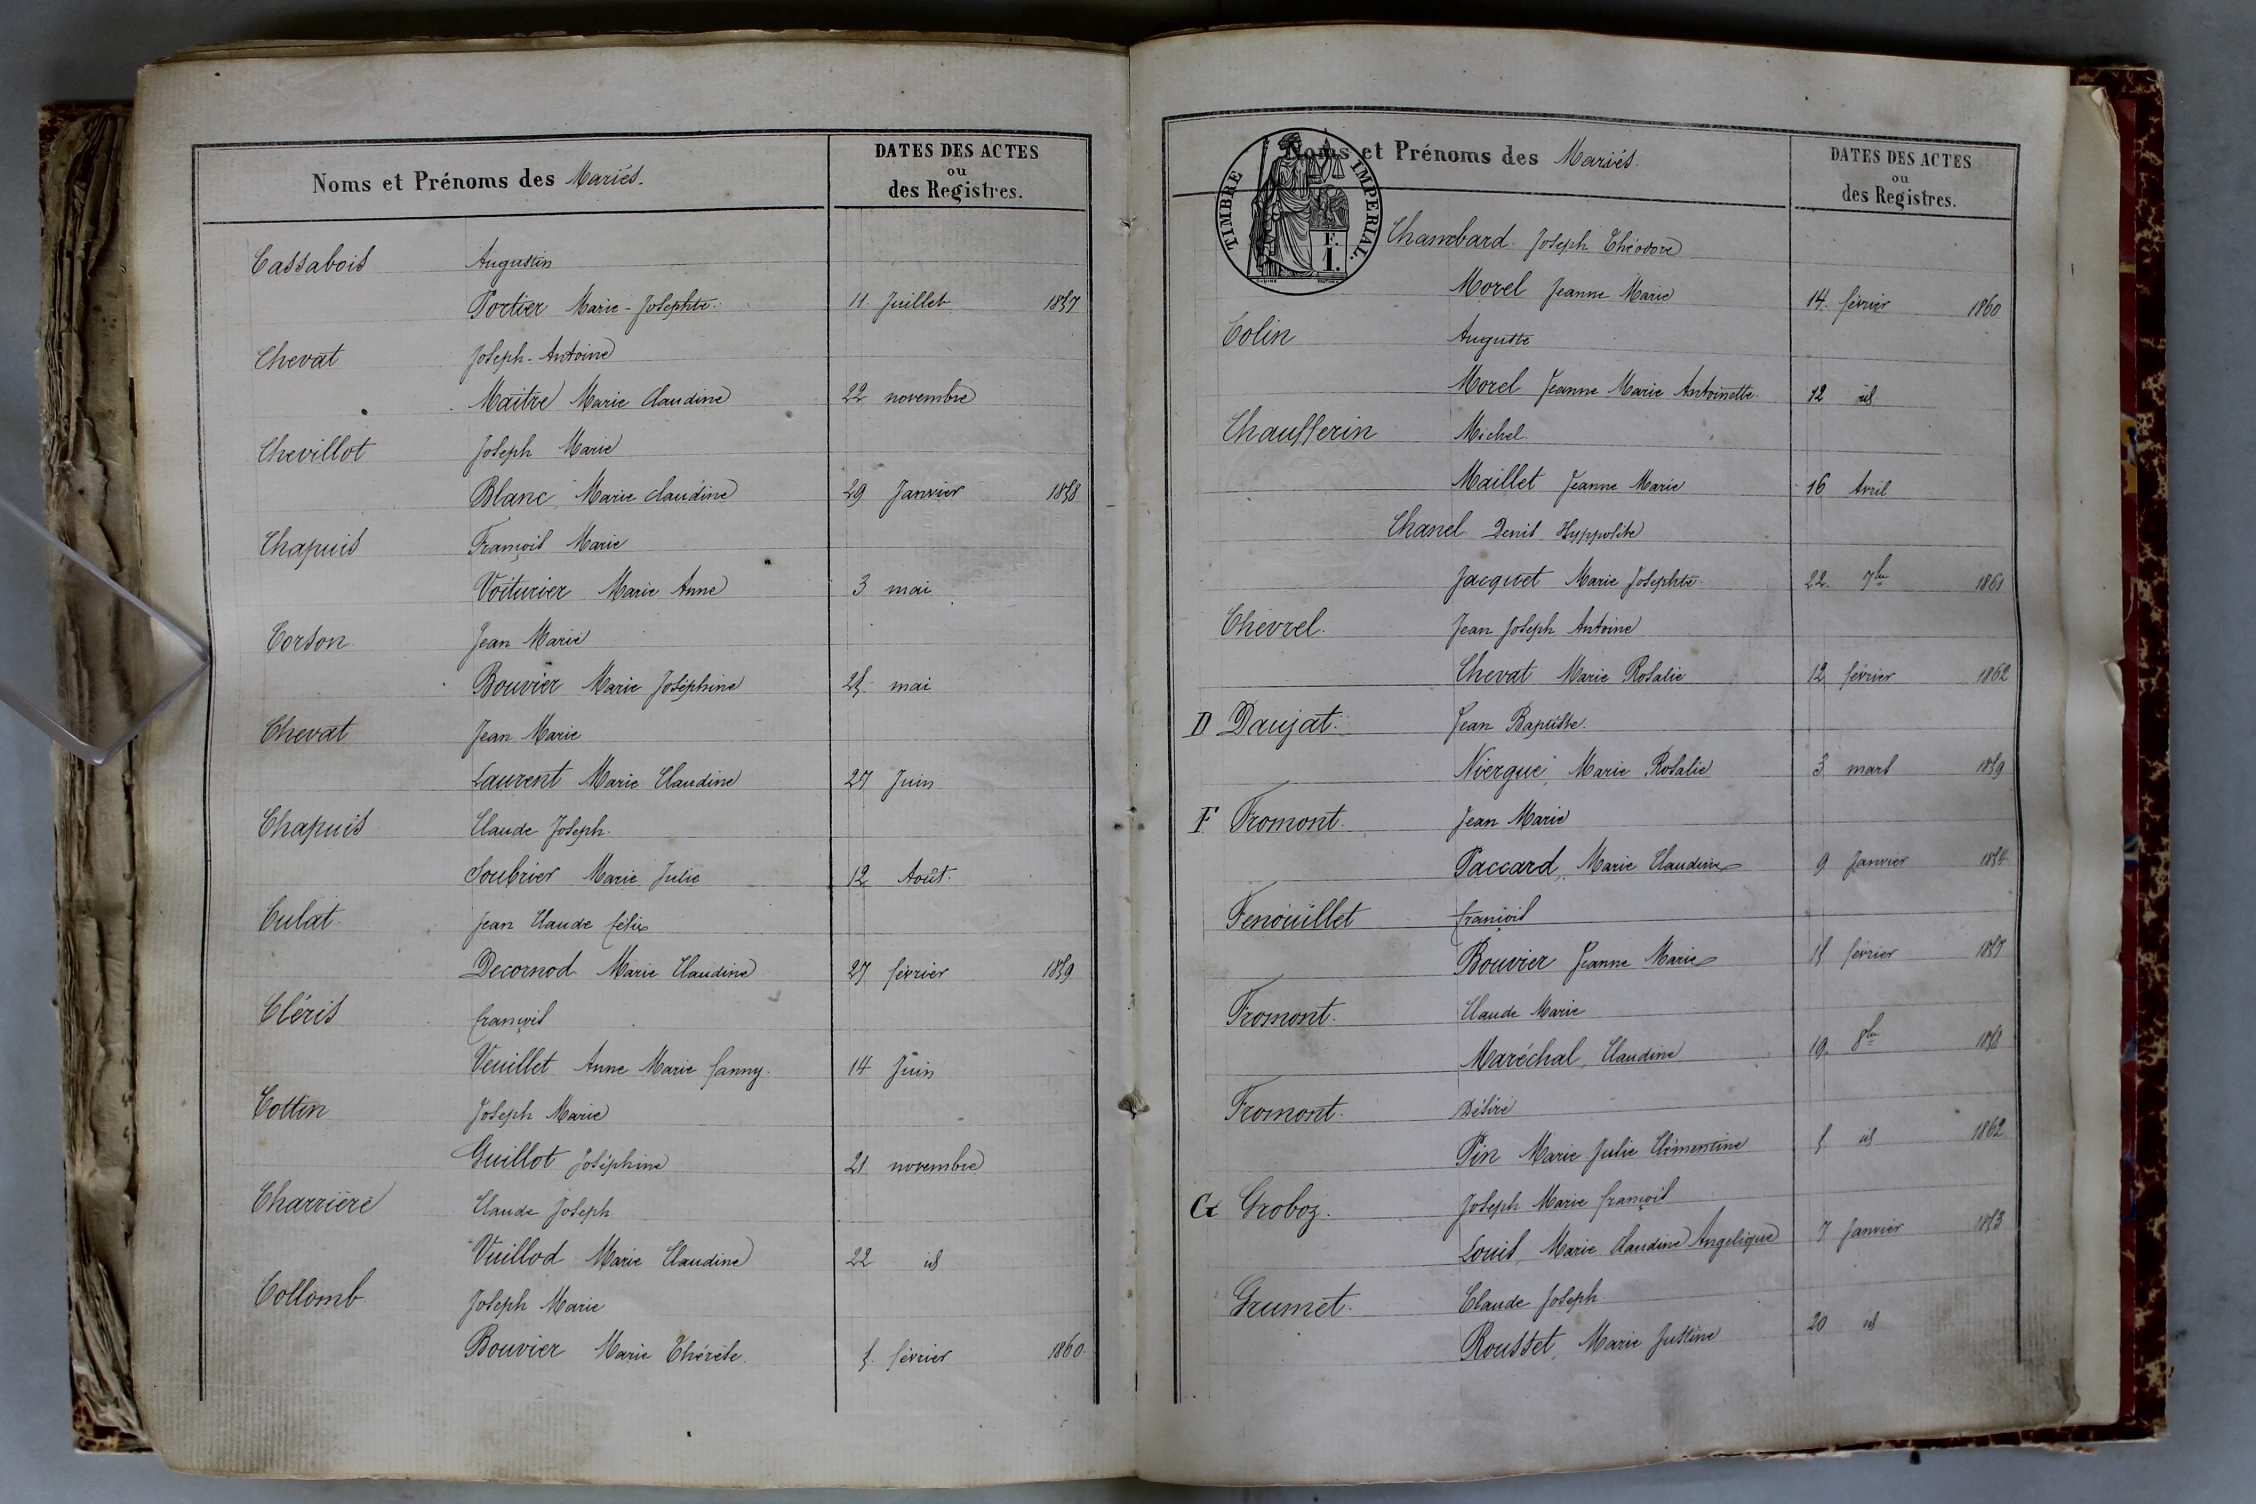 Noms et Prénoms des Mariés.
DATES DES ACTES
ou
des Registres.
Cassabois Augustin
Portier Marie-Josephte. 11 Juillet 1857
Chevat Joseph-Antoine
Maitre Marie Claudine 22 novembre
Chevillot Joseph Marie
Blanc, Marie claudine 29 Janvier 1858
Chapuis François Marie
Voiturier Marie Anne 3 mai
Corson Jean Marie
Bouvier Marie Joséphine mai
Chevat Jean Marie
Laurent Marie Claudine 27 Juin
Chapuis Claude Joseph
Soubrier Marie Julie 12 Août.
Culat Jean Claude félix
Decornod Marie Claudine 27 février 1859
Cléris françois
Veuillet Anne Marie fanny. 14 Juin
Cottin Joseph Marie
Guillot Joséphine 21 novembre
Charrière Claude Joseph
Vuillod Marie Claudine 22 id
Collomb Joseph Marie
Bouvier Marie Thérèse. 5. février 1860.
TIMBRE IMPERIAL.
F.
1.
Noms et Prénoms des Mariés.
DATES DES ACTES
ou
des Registres.
Chambard Joseph Théodore
Morel Jeanne Marie 14. février 1860
Colin Auguste
Morel Jeanne Marie Antoinette 12 id
Chaufferin Michel
Maillet Jeanne Marie 16 Avril
Chanel Denis Hyppolite
Jacquet Marie Josephte 22 7bre 1861
Chevrel. Jean Joseph Antoine
Chevat Marie Rosalie 12 février 1862
D Daujat. Jean Baptiste.
Niergue, Marie Rosalie 3 mars 1859
F Fromont. Jean Marie
Paccard, Marie Claudine 9 Janvier 1854
Fenouillet françois
Bouvier Jeanne Marie février 1857
Fromont. Claude Marie
Maréchal, Claudine 19. 8bre
Fromont. Désiré
Pin Marie Julie Clémentine 5 id 1862
G Groboz. Joseph Marie françois
Louis, Marie claudine Angelique 7 Janvier 1853
Grumet. Claude Joseph
Rousset, Marie Justine 20 id